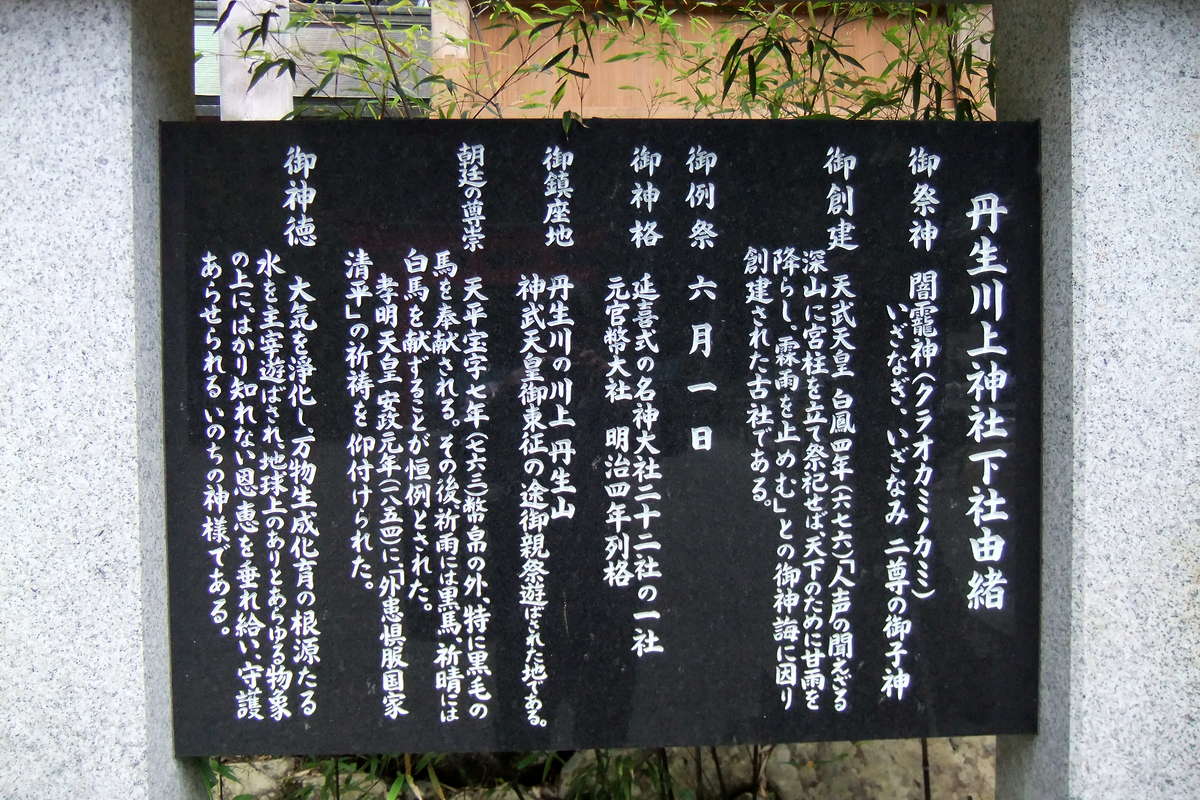 丹生川上神社下社由緒
御祭神 闇龗神(クラオカミノカミ)
いざなぎ、いざなみ 二尊の御子神
御創建 天武天皇 白鳳四年(六七六)「人声の聞えざる
深山に宮柱を立て祭祀せば、天下のために甘雨を
降らし、霖雨を止めむ」との御神誨に因り
創建された古社である。
御例祭 六月一日
御神格 延喜式の名神大社二十二社の一社
元官幣大社 明治四年列格
御鎮座地 丹生川の川上 丹生山
神武天皇御東征の途御親祭遊ばされた地である。
朝廷の尊崇 天平宝字七年(七六三)幣帛の外、特に黒毛の
馬を奉献される。その後、祈雨には黒馬、祈晴には
白馬を献ずることが恒例とされた。
孝明天皇 安政元年(一八五四)に、「外患惧服国家
清平」の祈祷を仰付けられた。
御神徳 大気を浄化し、万物生成化育の根源たる
水を主宰遊ばされ地球上のありとあらゆる物象
の上に、はかり知れない恩恵を垂れ給い、守護
あらせられるいのちの神様である。